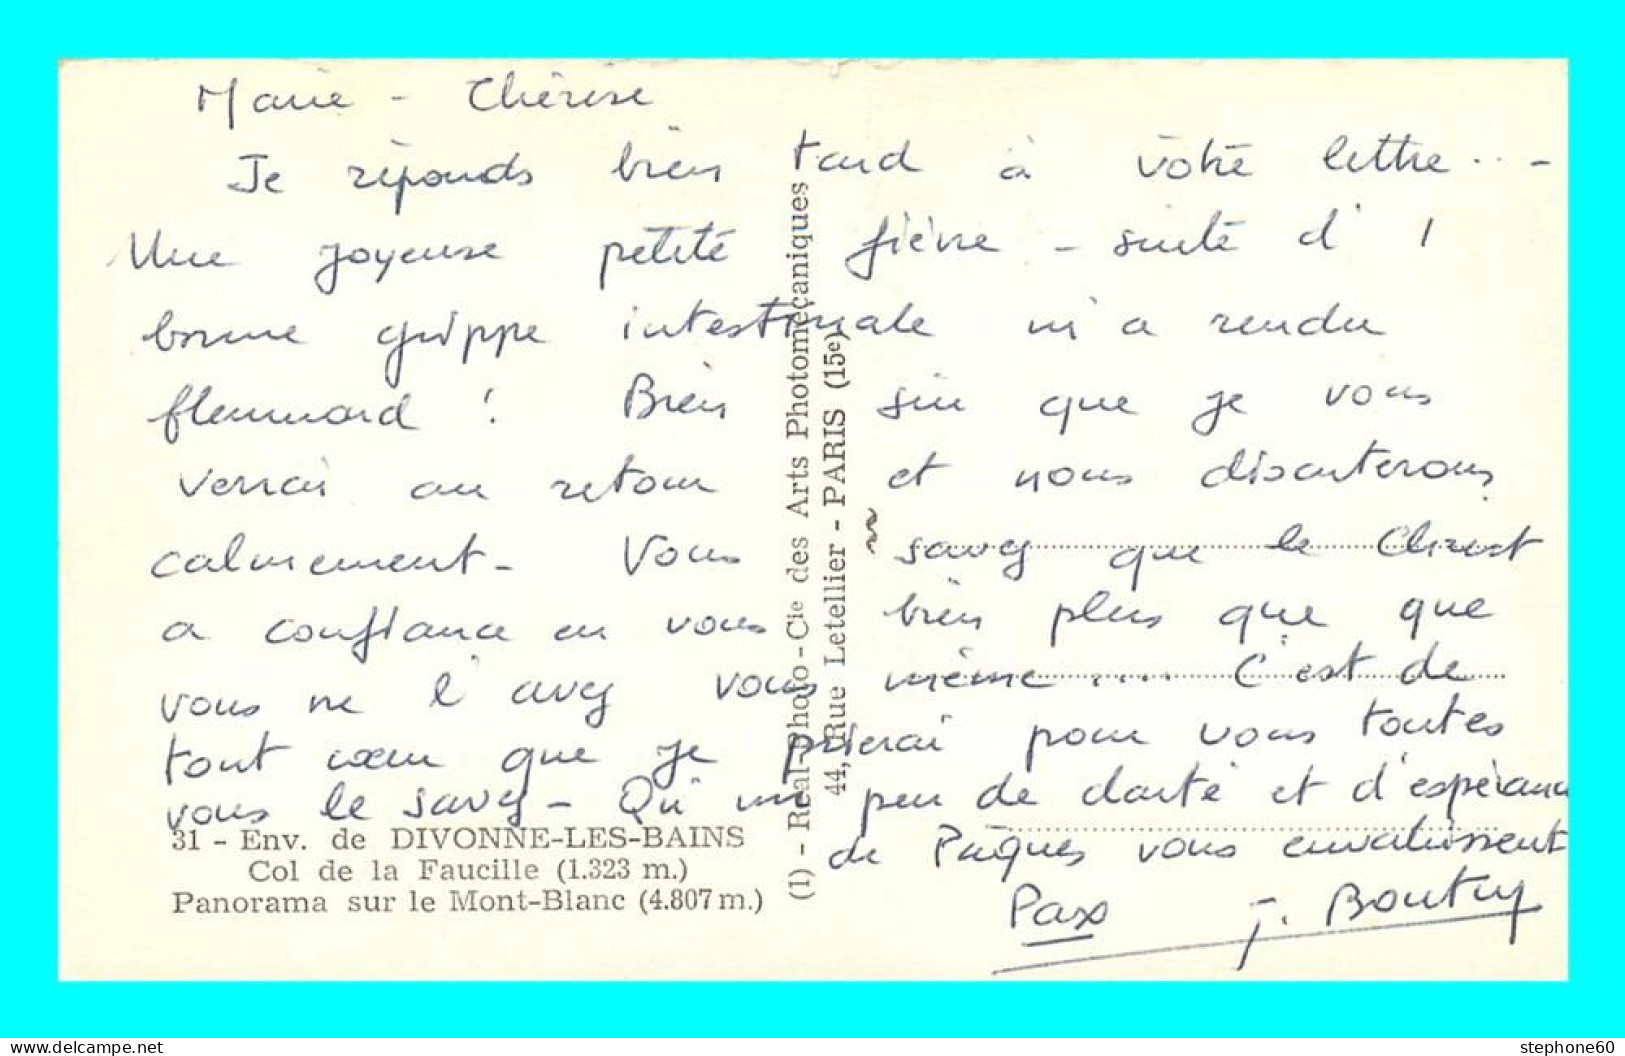 Marie - Thérèse
Je réponds bien tard à votre lettre ... -
Une joyeuse petite fièvre - suite d' 1
bonne grippe intestinale m'a rendu
flemmard ! Bien sûr que je vous
verrai au retour et nous discuterons
calmement - Vous savez que le Christ
a confiance en vous bien plus que que
vous ne l'avez vous même .... C'est de
tout cœur que je prierai pour vous toutes
vous le savez - Qu'un peu de clarté et d'espérance
de Pâques vous envahissent
Pax J. Boutry
31 - Env. de DIVONNE-LES-BAINS
Col de la Faucille (1.323 m.)
Panorama sur le Mont-Blanc (4.807 m.)
(1) - Real-Photo - Cie des Arts Photomécaniques
44, Rue Letellier - PARIS (15e)
https://www.delcampe.net
stephone60